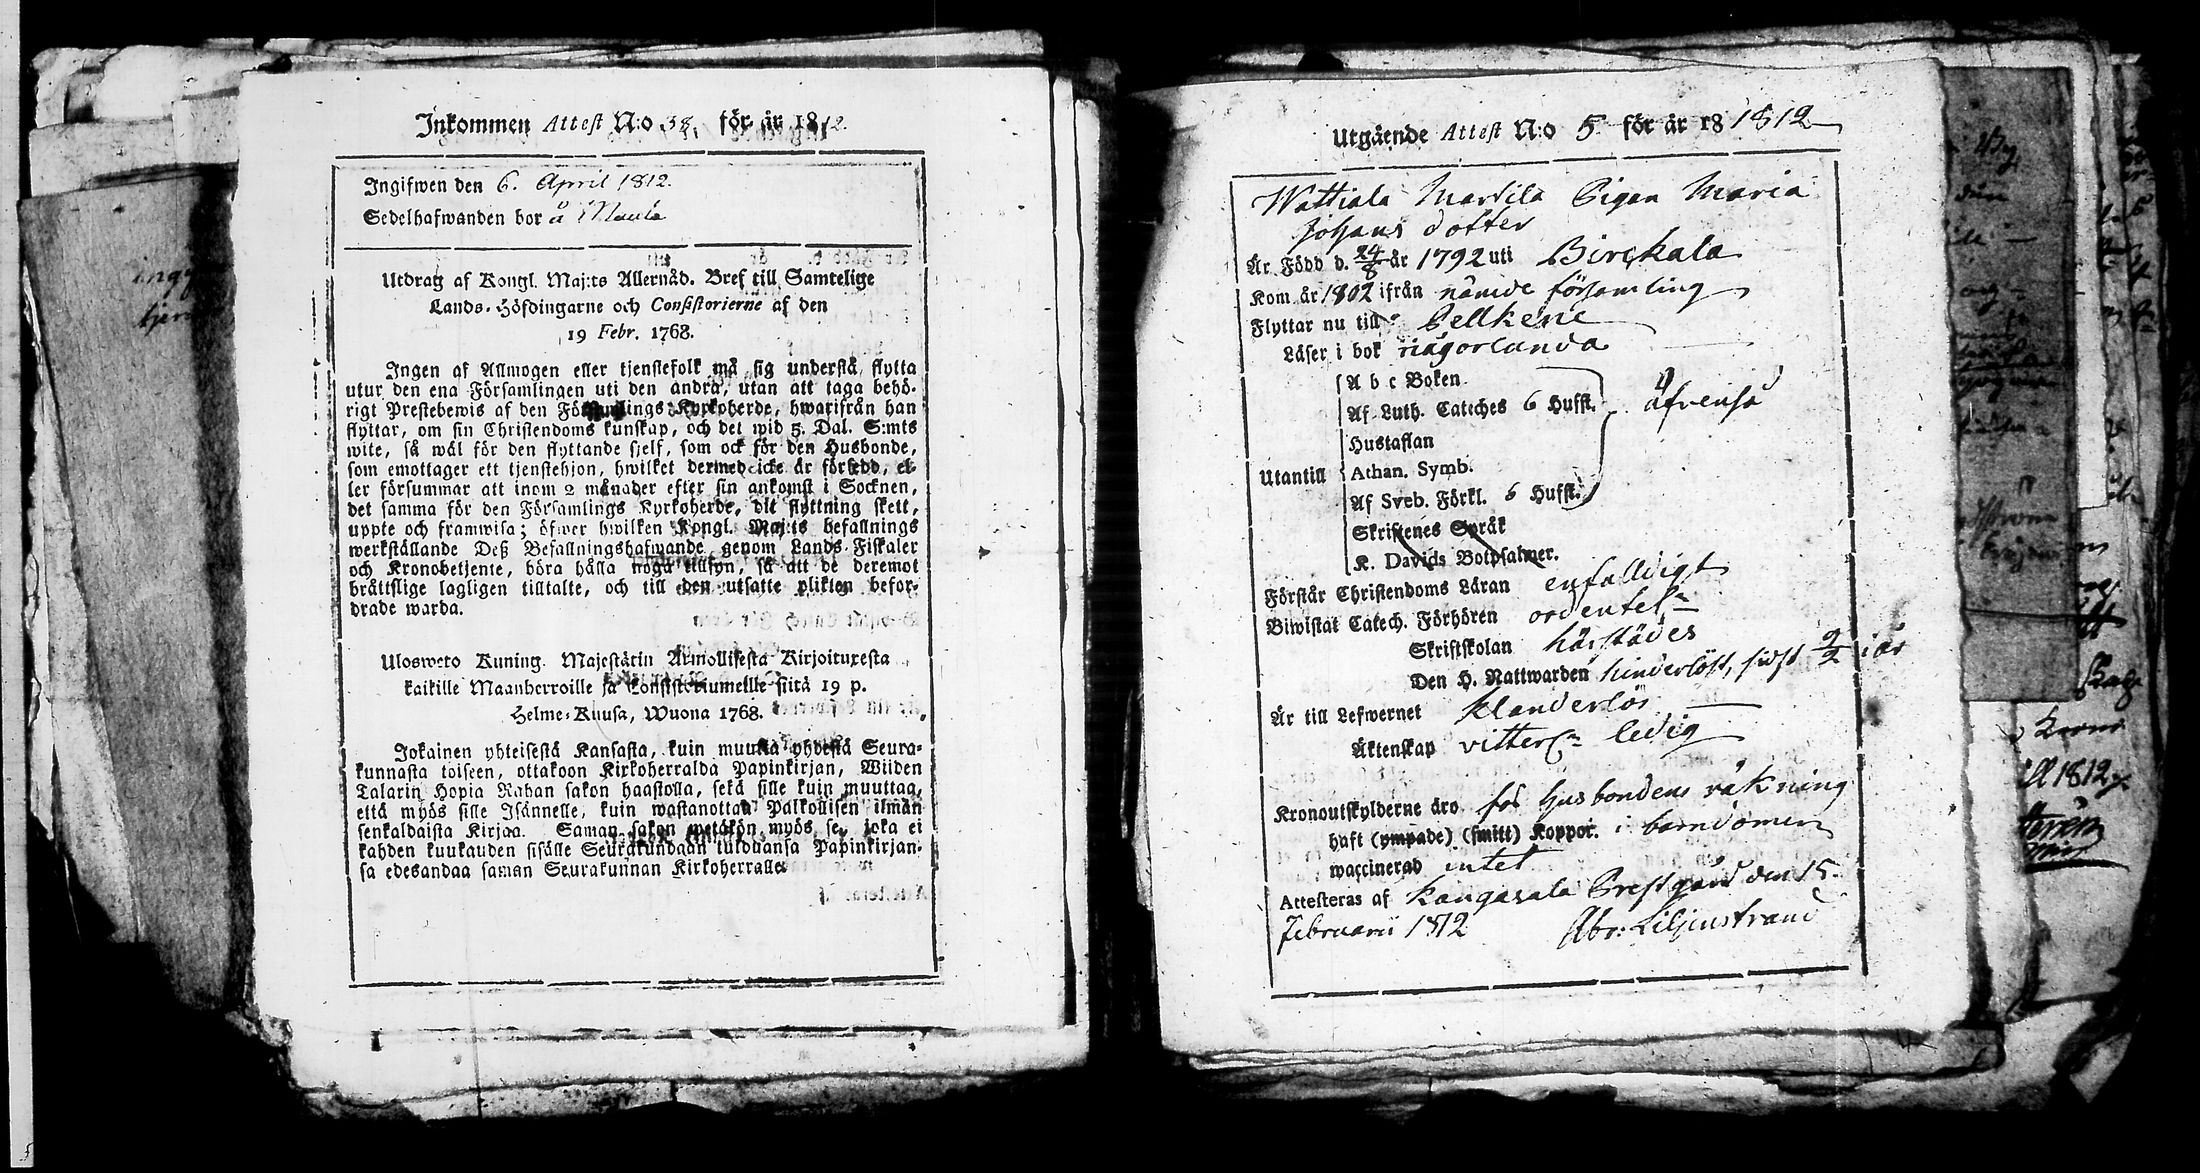 Inkommen Attest N:o 38. för år 1812.
Ingifwen den 6. April 1812.
Sedelhafwanden bor å
Utdrag af Kongl. Maj:ts Allernåd. Bref till Samtelige
Lands-Höfdingarne och Consistorierne af den
19 Febr. 1768.
Ingen af Allmogen eller tjenstefolk må sig understå flytta
utur den ena Församlingen uti den andra, utan att taga behö-
rigt Prestebewis af den Församlings Kyrkoherde, hwarifrån han
flyttar, om sin Christendoms kunskap, och det wid 5. Dal. S:mts
wite, så wäl för den flyttande sjelf, som ock för den Husbonde,
som emottager ett tjenstehjon, hwilket dermed icke är försedd, el-
ler försummar att inom 2 månader efter sin ankomst i Socknen,
det samma för den Församlings Kyrkoherde, dit flyttning skett,
uppte och framwisa; öfwer hwilken Kongl. Maj:ts befallnings
werkställande Deß Befallningshafwande genom Lands-Fiskaler
och Kronobetjente, böra hålla noga tillsyn, så att de deremot
bråttslige lagligen tilltalte, och till den utsatte plikten befor-
drade warda.
Ulosweto Kuning. Majestätin Armollisesta Kirjoituxesta
kaikille Maanherroille ja Konsistoriumeille siitä 19 p.
Helme-Kuusa, Wuona 1768.
Jokainen yhteisestä Kansasta, kuin muutta yhdestä Seura-
kunnasta toiseen, ottakoon Kirkoherralda Papinkirjan, Wiiden
Talarin Hopia Rahan sakon haastolla, sekä sille kuin muuttaa,
että myös sille Isännelle, kuin wastanottaa Palkollisen ilman
senkaldaista Kirjaa. Saman sakon wetäkön myös se, joka ei
kahden kuukauden sisälle Seurakundaan tulduansa Papinkirjan-
sa edesandaa saman Seurakunnan Kirkoherralle.
Utgående Attest N:o 5 för år 18 1812
Wattiala Marttila Pigan Maria
Johans dotter
Är Född d. 24/8 år 1792 uti Birckala
Kom år 1802 ifrån nämde församling
Flyttar nu till Pellkene
Läser i bok någorlunda
A b c Boken
Af Luth. Cateches 6 Hufst. äfvenså
Hustaflan
Utantill Athan. Symb.
Af Sveb. Förkl. 6 Hufst.
Skriftenes Språk
K. Davids Botpsalmer.
Förstår Christendoms Läran enfaldigt
Biwistat Catech. Förhören ordentel:n
Skriftskolan härstädes
Den H. Nattwarden hinderlöst, sidst 9/2 i år
Är till Lefwernet klanderlös
Äktenskap ledig
Kronoutskylderne äro för husbondens räkning
haft (ympade) (smitt) Koppor. i barndomen
waccinerad intet
Attesteras af Kangasala Prestgård den 15.
Februarii 1812 Abr: Liljenstrand